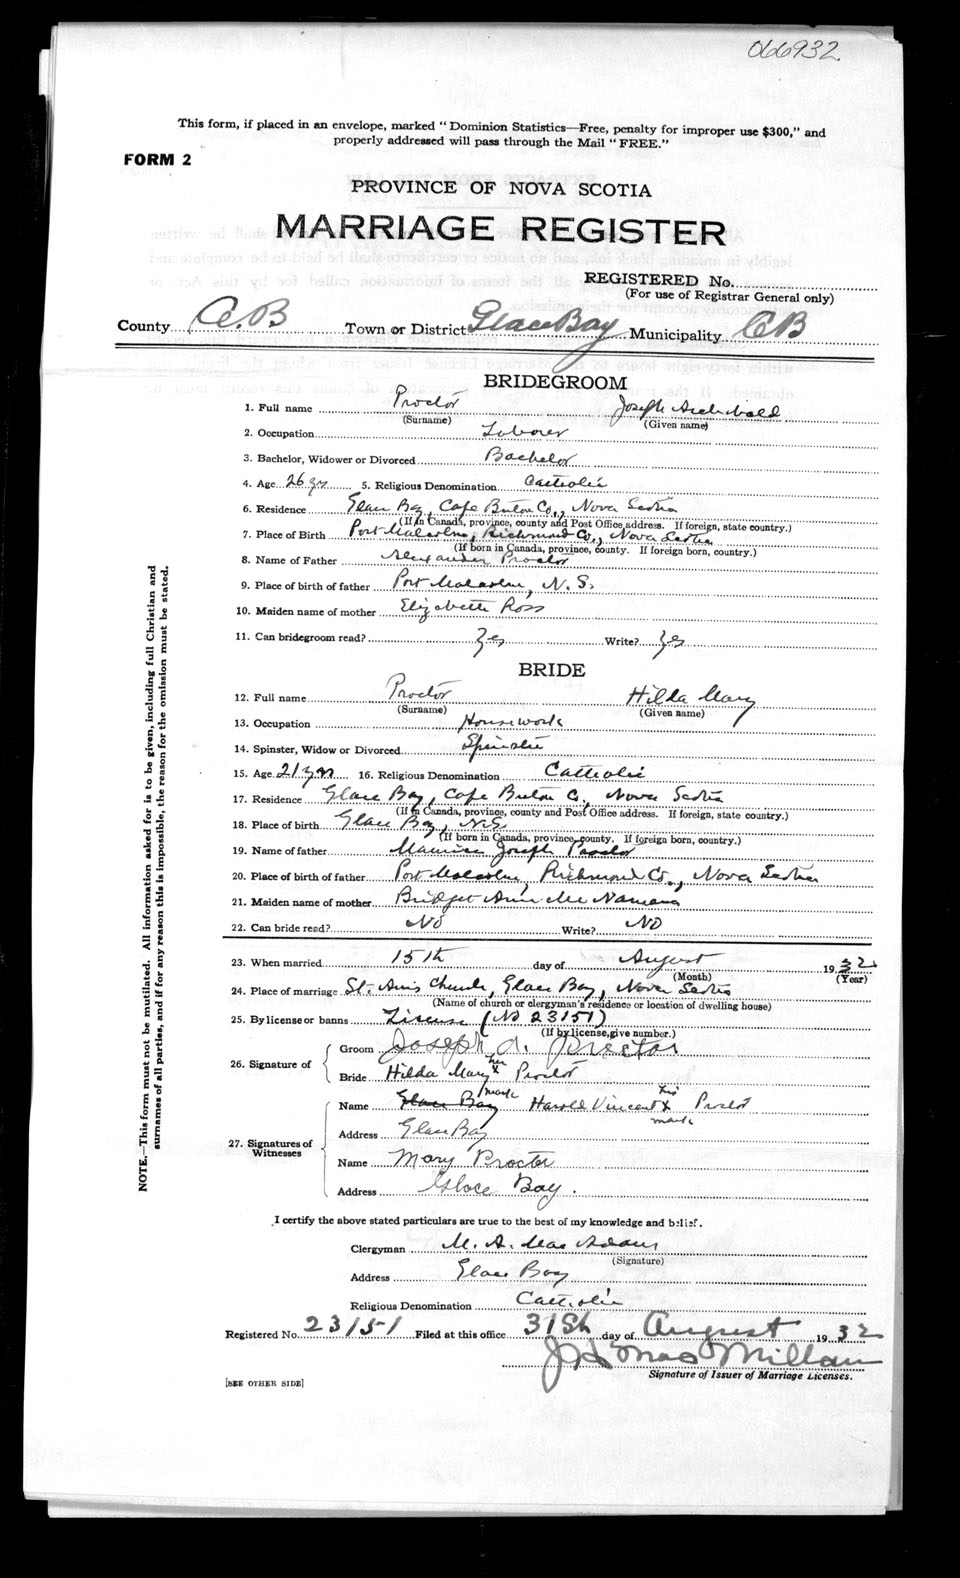 066932
This form, if placed in an envelope, marked "Dominion Statistics—Free, penalty for improper use $300," and
properly addressed will pass through the Mail "FREE."
FORM 2
PROVINCE OF NOVA SCOTIA
MARRIAGE REGISTER
REGISTERED No.
(For use of Registrar General only)
County C.B Town or District Glace Bay Municipality CB
BRIDEGROOM
1. Full name Proctor Joseph Archibald
(Surname) (Given name)
2. Occupation Laborer
3. Bachelor, Widower or Divorced Bachelor
4. Age 26 yrs 5. Religious Denomination Catholic
6. Residence Glace Bay, Cape Breton Co., Nova Scotia
(If in Canada, province, county and Post Office address. If foreign, state country.)
7. Place of Birth Port Malcolm, Richmond Co., Nova Scotia
(If born in Canada, province, county. If foreign born, country.)
8. Name of Father Alexander Proctor
9. Place of birth of father Port Malcolm, N.S.
10. Maiden name of mother Elizabeth Ross
11. Can bridegroom read? Yes Write? Yes
BRIDE
12. Full name Proctor Hilda Mary
(Surname) (Given name)
13. Occupation Housework
14. Spinster, Widow or Divorced Spinster
15. Age 21 yrs 16. Religious Denomination Catholic
17. Residence Glace Bay, Cape Breton Co., Nova Scotia
(If in Canada, province, county and Post Office address. If foreign, state country.)
18. Place of birth Glace Bay, N.S.
(If born in Canada, province, county. If foreign born, country.)
19. Name of father Maurice Joseph Proctor
20. Place of birth of father Port Malcolm, Richmond Co., Nova Scotia
21. Maiden name of mother Bridget Ann Mc Namara
22. Can bride read? No Write? No
23. When married 15th day of August 1932
(Month) (Year)
24. Place of marriage St. Anns Church, Glace Bay, Nova Scotia
(Name of church or clergyman's residence or location of dwelling house)
25. By license or banns License (No 23151)
(If by license, give number.)
26. Signature of
Groom Joseph A. Proctor
Bride Hilda Mary her x mark Proctor
27. Signatures of Witnesses
Name Glace Bay Harold Vincent his x mark Proctor
Address Glace Bay
Name Mary Procter
Address Glace Bay.
I certify the above stated particulars are true to the best of my knowledge and belief.
Clergyman M. A. Mac Adam
(Signature)
Address Glace Bay
Religious Denomination Catholic
Registered No. 23151 Filed at this office 31st day of August 1932
Signature of Issuer of Marriage Licenses.
[SEE OTHER SIDE]
NOTE.—This form must not be mutilated. All information asked for is to be given, including full Christian and
surnames of all parties, and if for any reason this is impossible, the reason for the omission must be stated.